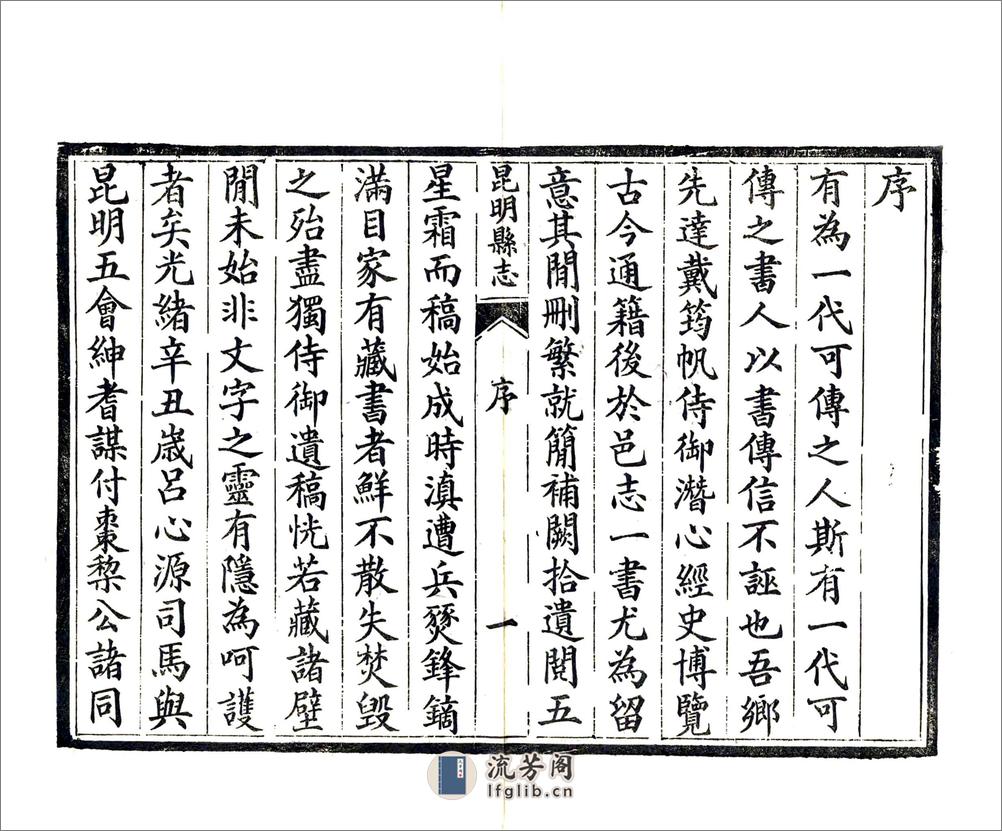 序
有為一代可傳之人斯有一代可
傳之書人以書傳信不誣也吾鄉
先達戴筠帆侍御潛心經史博覽
古今通籍後於邑志一書尤為留
意其閒刪繁就簡補闕拾遺閱五
昆明縣志 序 一
星霜而稿始成時滇遭兵燹鋒鏑
滿目家有藏書者鮮不散失焚毀
之殆盡獨侍御遺稿恍若藏諸壁
閒未始非文字之靈有隱為呵護
者矣光緒辛丑嵗呂心源司馬與
昆明五會紳耆謀付棗棃公諸同
流芳阁
lfglib.cn